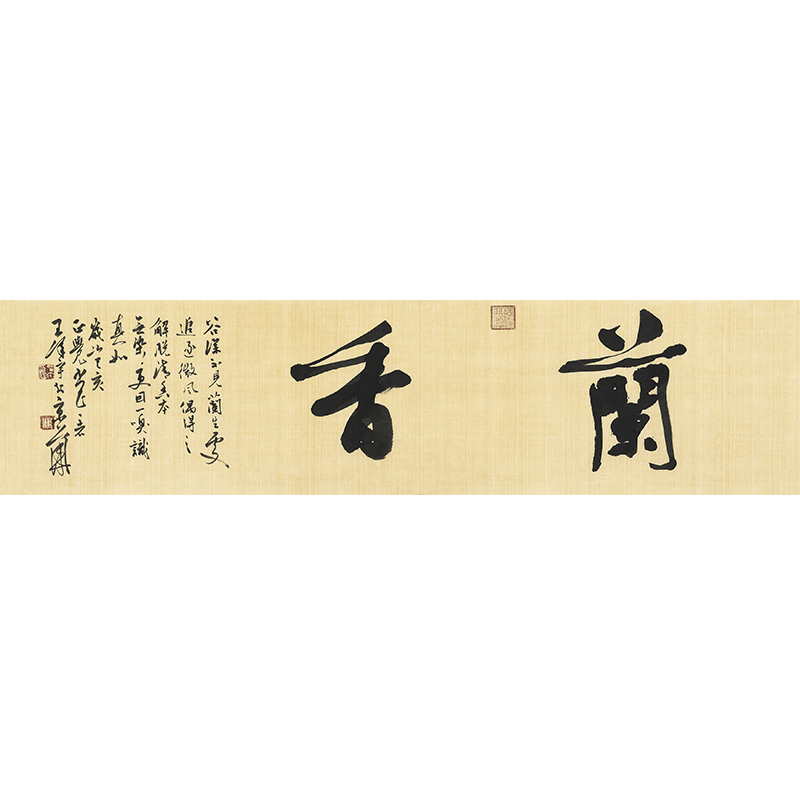 蘭香
谷深不見蘭生處
追逐微風偶得之
解脫清香本
無染更因一嗅識
真如
歲次乙亥
正覺
王澤